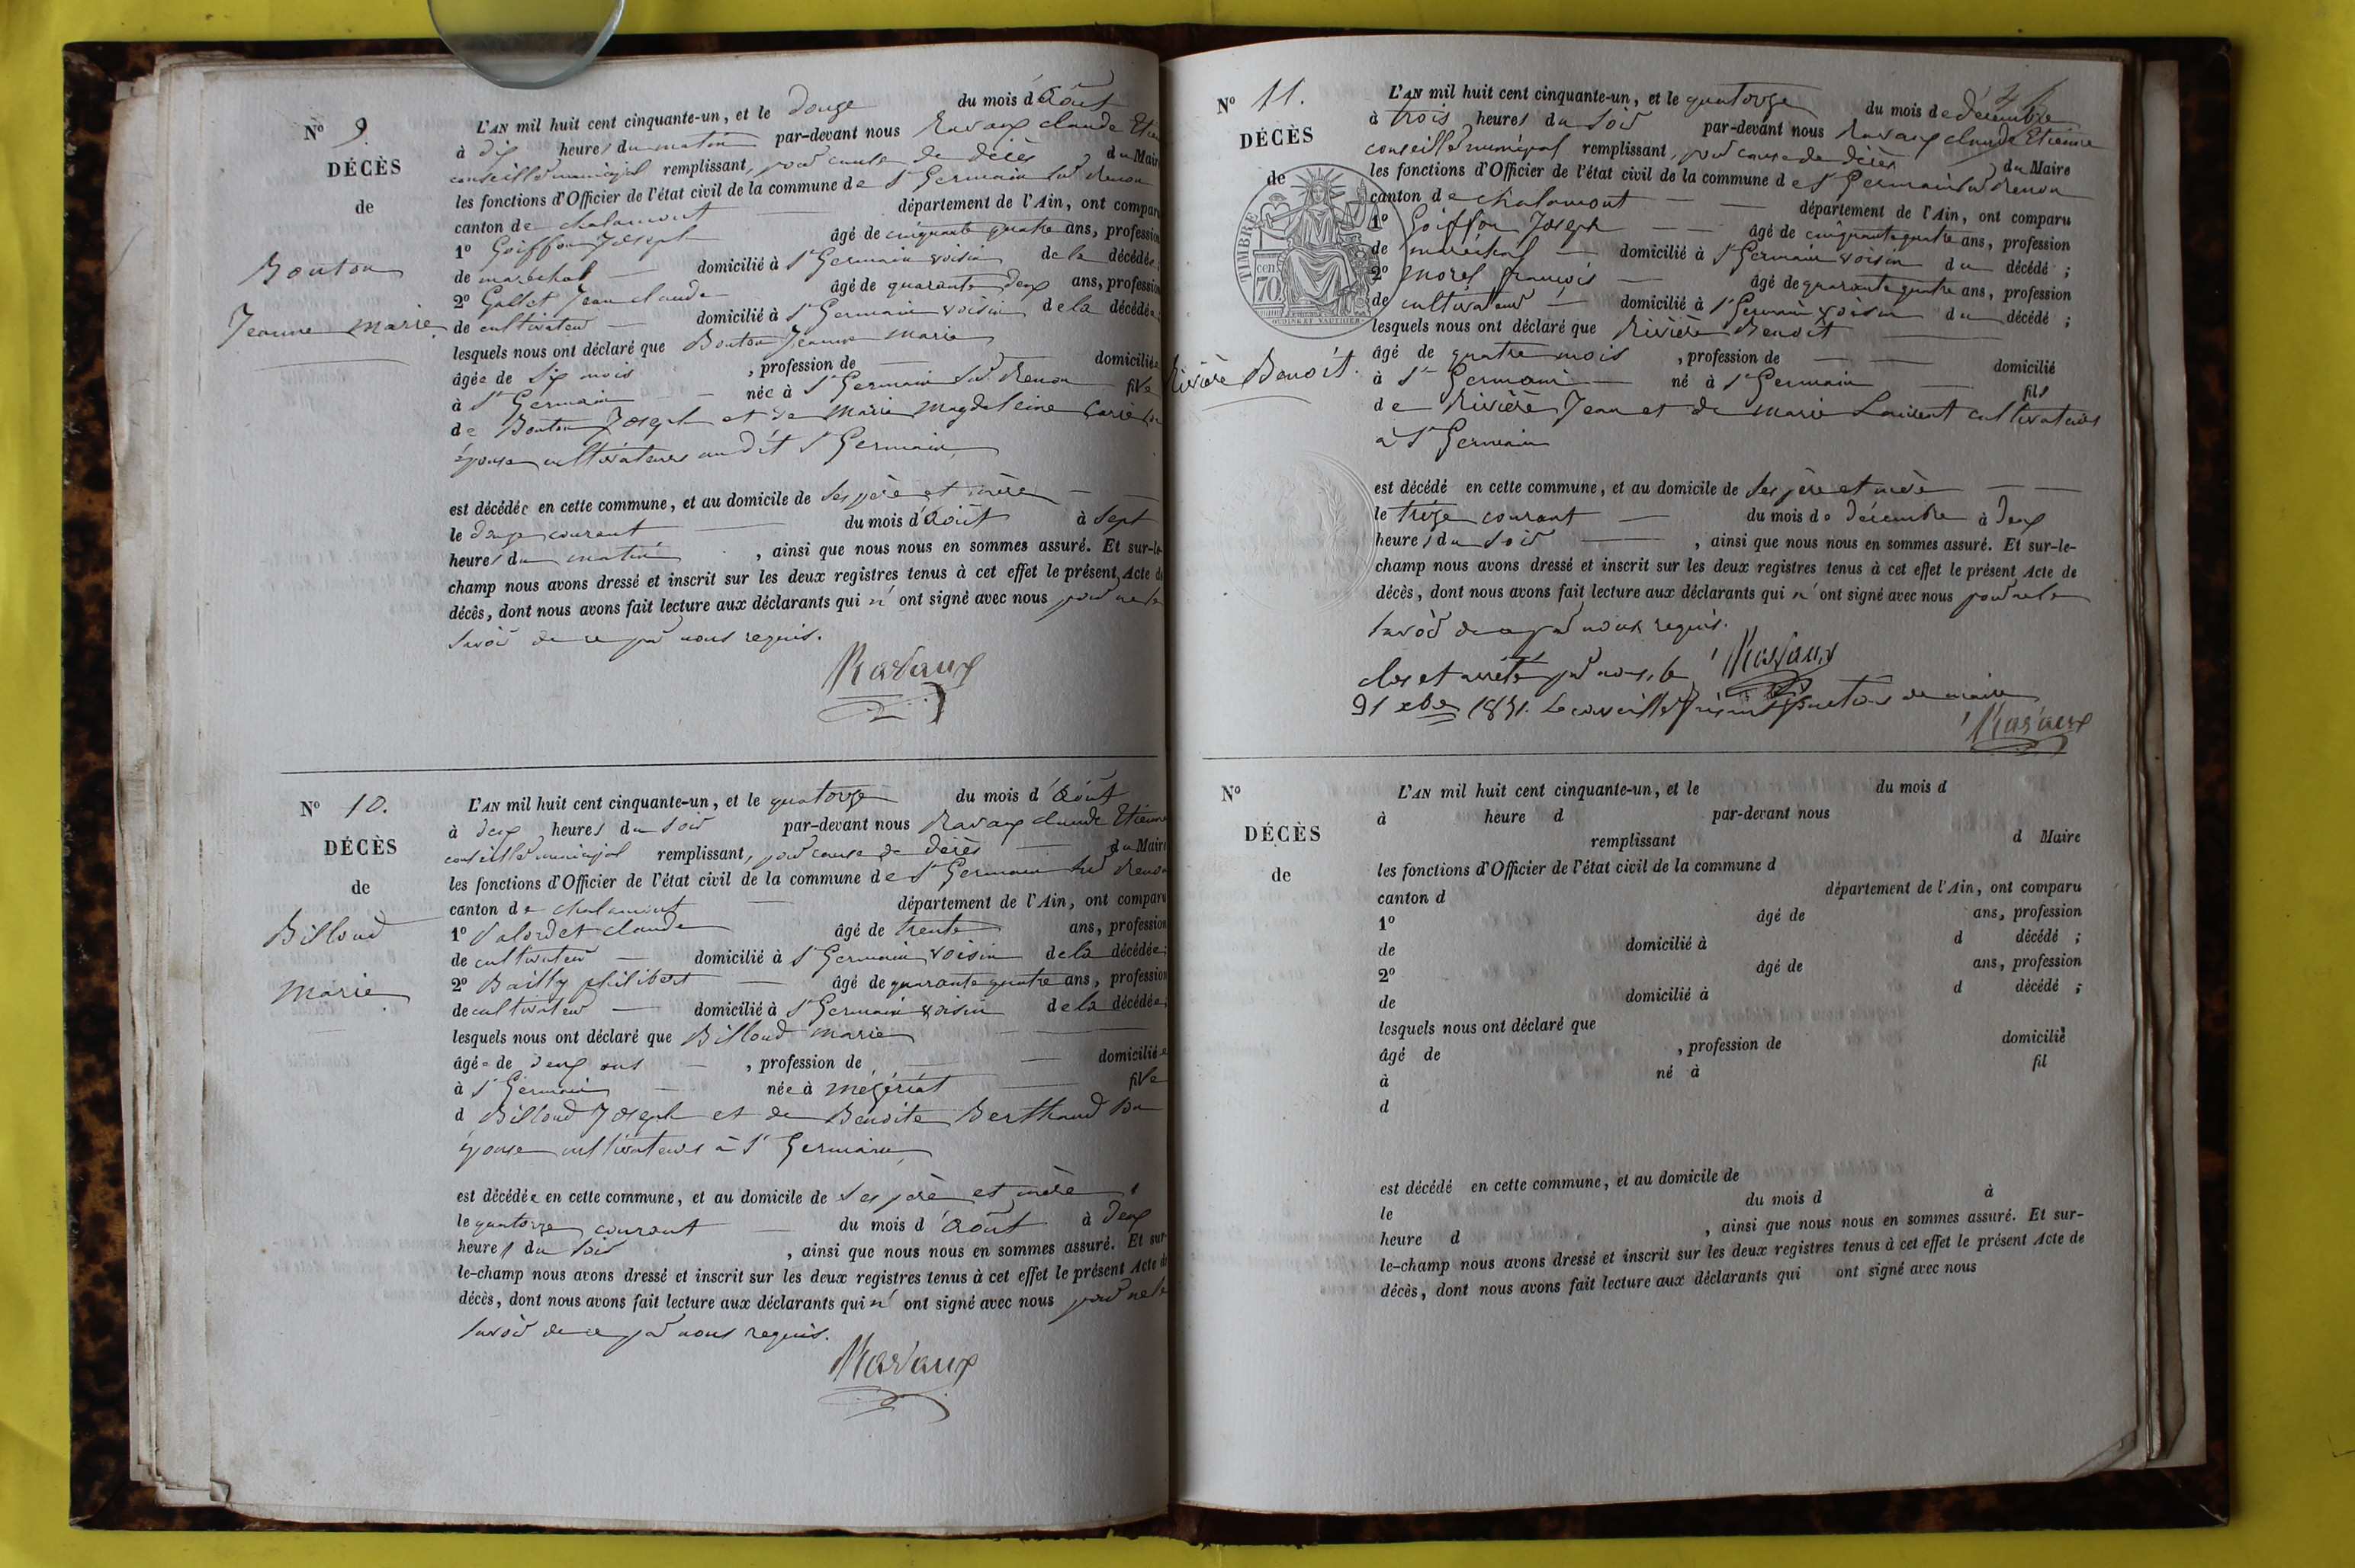 N° 9.
DÉCÈS
de
Bouton
Jeanne Marie
L'AN mil huit cent cinquante-un, et le douze du mois d'Août
à dix heures du matin par-devant nous Ravaux Claude
conseiller municipal remplissant, pour cause de décès du Maire
les fonctions d'Officier de l'état civil de la commune de St Germain sur Renon
canton de chalamont département de l'Ain, ont comparu
1° Goiffon Joseph âgé de cinquante quatre ans, profession
de maréchal domicilié à St Germain voisin de la décédée;
2° Gallet Jean claude âgé de quarante deux ans, profession
de cultivateur domicilié à St Germain voisin de la décédée;
lesquels nous ont déclaré que Bouton Jeanne marie
âgée de six mois , profession de domiciliée
à St Germain née à St Germain sur Renon fille
de Bouton Joseph et de Marie Magdeleine
épouse cultivateurs audit St Germain
est décédée en cette commune, et au domicile de ses père et mère
le douze courant du mois d'Août à sept
heures du matin , ainsi que nous nous en sommes assuré. Et sur-le-
champ nous avons dressé et inscrit sur les deux registres tenus à cet effet le présent Acte de
décès, dont nous avons fait lecture aux déclarants qui n'ont signé avec nous pour ne le
savoir de ce par nous requis.
Ravaux
N° 10.
DÉCÈS
de
Billoud
Marie
L'AN mil huit cent cinquante-un, et le quatorze du mois d'Août
à deux heures du soir par-devant nous Ravaux claude Etienne
conseiller municipal remplissant, pour cause de décès du Maire
les fonctions d'Officier de l'état civil de la commune de St Germain sur Renon
canton de chalamont département de l'Ain, ont comparu
1° claude âgé de trente ans, profession
de cultivateur domicilié à St Germain voisin de la décédée;
2° Bailly philibert âgé de quarante quatre ans, profession
de cultivateur domicilié à St Germain voisin de la décédée;
lesquels nous ont déclaré que Billoud marie
âgée de deux ans , profession de domiciliée
à St Germain née à mézériat fille
d Billoud Joseph et de Benoite Berthaud sa
épouse cultivateurs à St Germain
est décédée en cette commune, et au domicile de ses père et mère
le quatorze courant du mois d'Août à deux
heures du soir , ainsi que nous nous en sommes assuré. Et sur-
le-champ nous avons dressé et inscrit sur les deux registres tenus à cet effet le présent Acte de
décès, dont nous avons fait lecture aux déclarants qui n'ont signé avec nous pour ne le
savoir de ce par nous requis.
Ravaux
N° 11.
DÉCÈS
de
TIMBRE
70 cen
Rivière Benoit.
L'AN mil huit cent cinquante-un, et le quatorze du mois de décembre
à trois heures du soir par-devant nous Ravaux claude Etienne
conseiller municipal remplissant, pour cause de décès du Maire
les fonctions d'Officier de l'état civil de la commune de St Germain sur Renon
canton de chalamont département de l'Ain, ont comparu
1° Goiffon Joseph âgé de cinquante quatre ans, profession
de maréchal domicilié à St Germain voisin du décédé ;
2° morel françois âgé de quarante quatre ans, profession
de cultivateur domicilié à St Germain voisin du décédé ;
lesquels nous ont déclaré que Rivière Benoit
âgé de quatre mois , profession de domicilié
à St Germain né à St Germain fils
de Rivière Jean et de marie Laurent cultivateurs
à St Germain
est décédé en cette commune, et au domicile de ses père et mère
le treize courant du mois de décembre à deux
heures du soir , ainsi que nous nous en sommes assuré. Et sur-le-
champ nous avons dressé et inscrit sur les deux registres tenus à cet effet le présent Acte de
décès, dont nous avons fait lecture aux déclarants qui n'ont signé avec nous pour ne le
savoir de ce par nous requis.
Ravaux
clos et arrêté par nous, le
31 xbre 1851. Le conseiller fonctions de maire
Ravaux
N°
DÉCÈS
de
L'AN mil huit cent cinquante-un, et le du mois d
à heure d par-devant nous
remplissant d Maire
les fonctions d'Officier de l'état civil de la commune d
canton d département de l'Ain, ont comparu
1° âgé de ans, profession
de domicilié à d décédé ;
2° âgé de ans, profession
de domicilié à d décédé ;
lesquels nous ont déclaré que
âgé de , profession de domicilié
à né à fil
d
est décédé en cette commune, et au domicile de
le du mois d à
heure d , ainsi que nous nous en sommes assuré. Et sur-
le-champ nous avons dressé et inscrit sur les deux registres tenus à cet effet le présent Acte de
décès, dont nous avons fait lecture aux déclarants qui ont signé avec nous